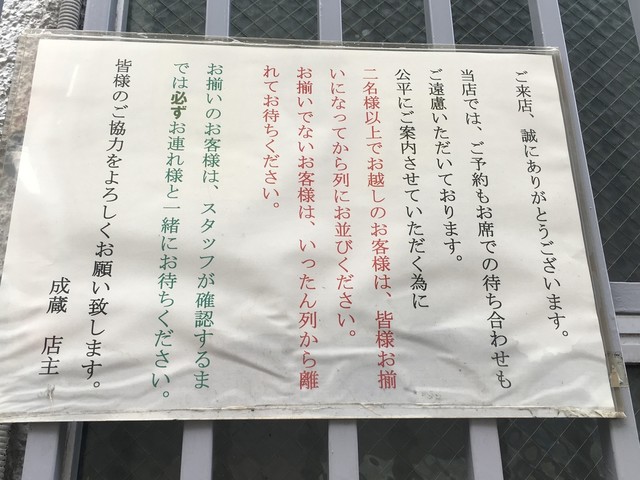 ご来店、誠にありがとうございます。
当店では、ご予約もお席での待ち合わせも
ご遠慮いただいております。
公平にご案内させていただく為に
二名様以上でお越しのお客様は、皆様お揃
いになってから列にお並びください。
お揃いでないお客様は、いったん列から離
れてお待ちください。
お揃いのお客様は、スタッフが確認するま
では必ずお連れ様と一緒にお待ちください。
皆様のご協力をよろしくお願い致します。
成蔵 店主